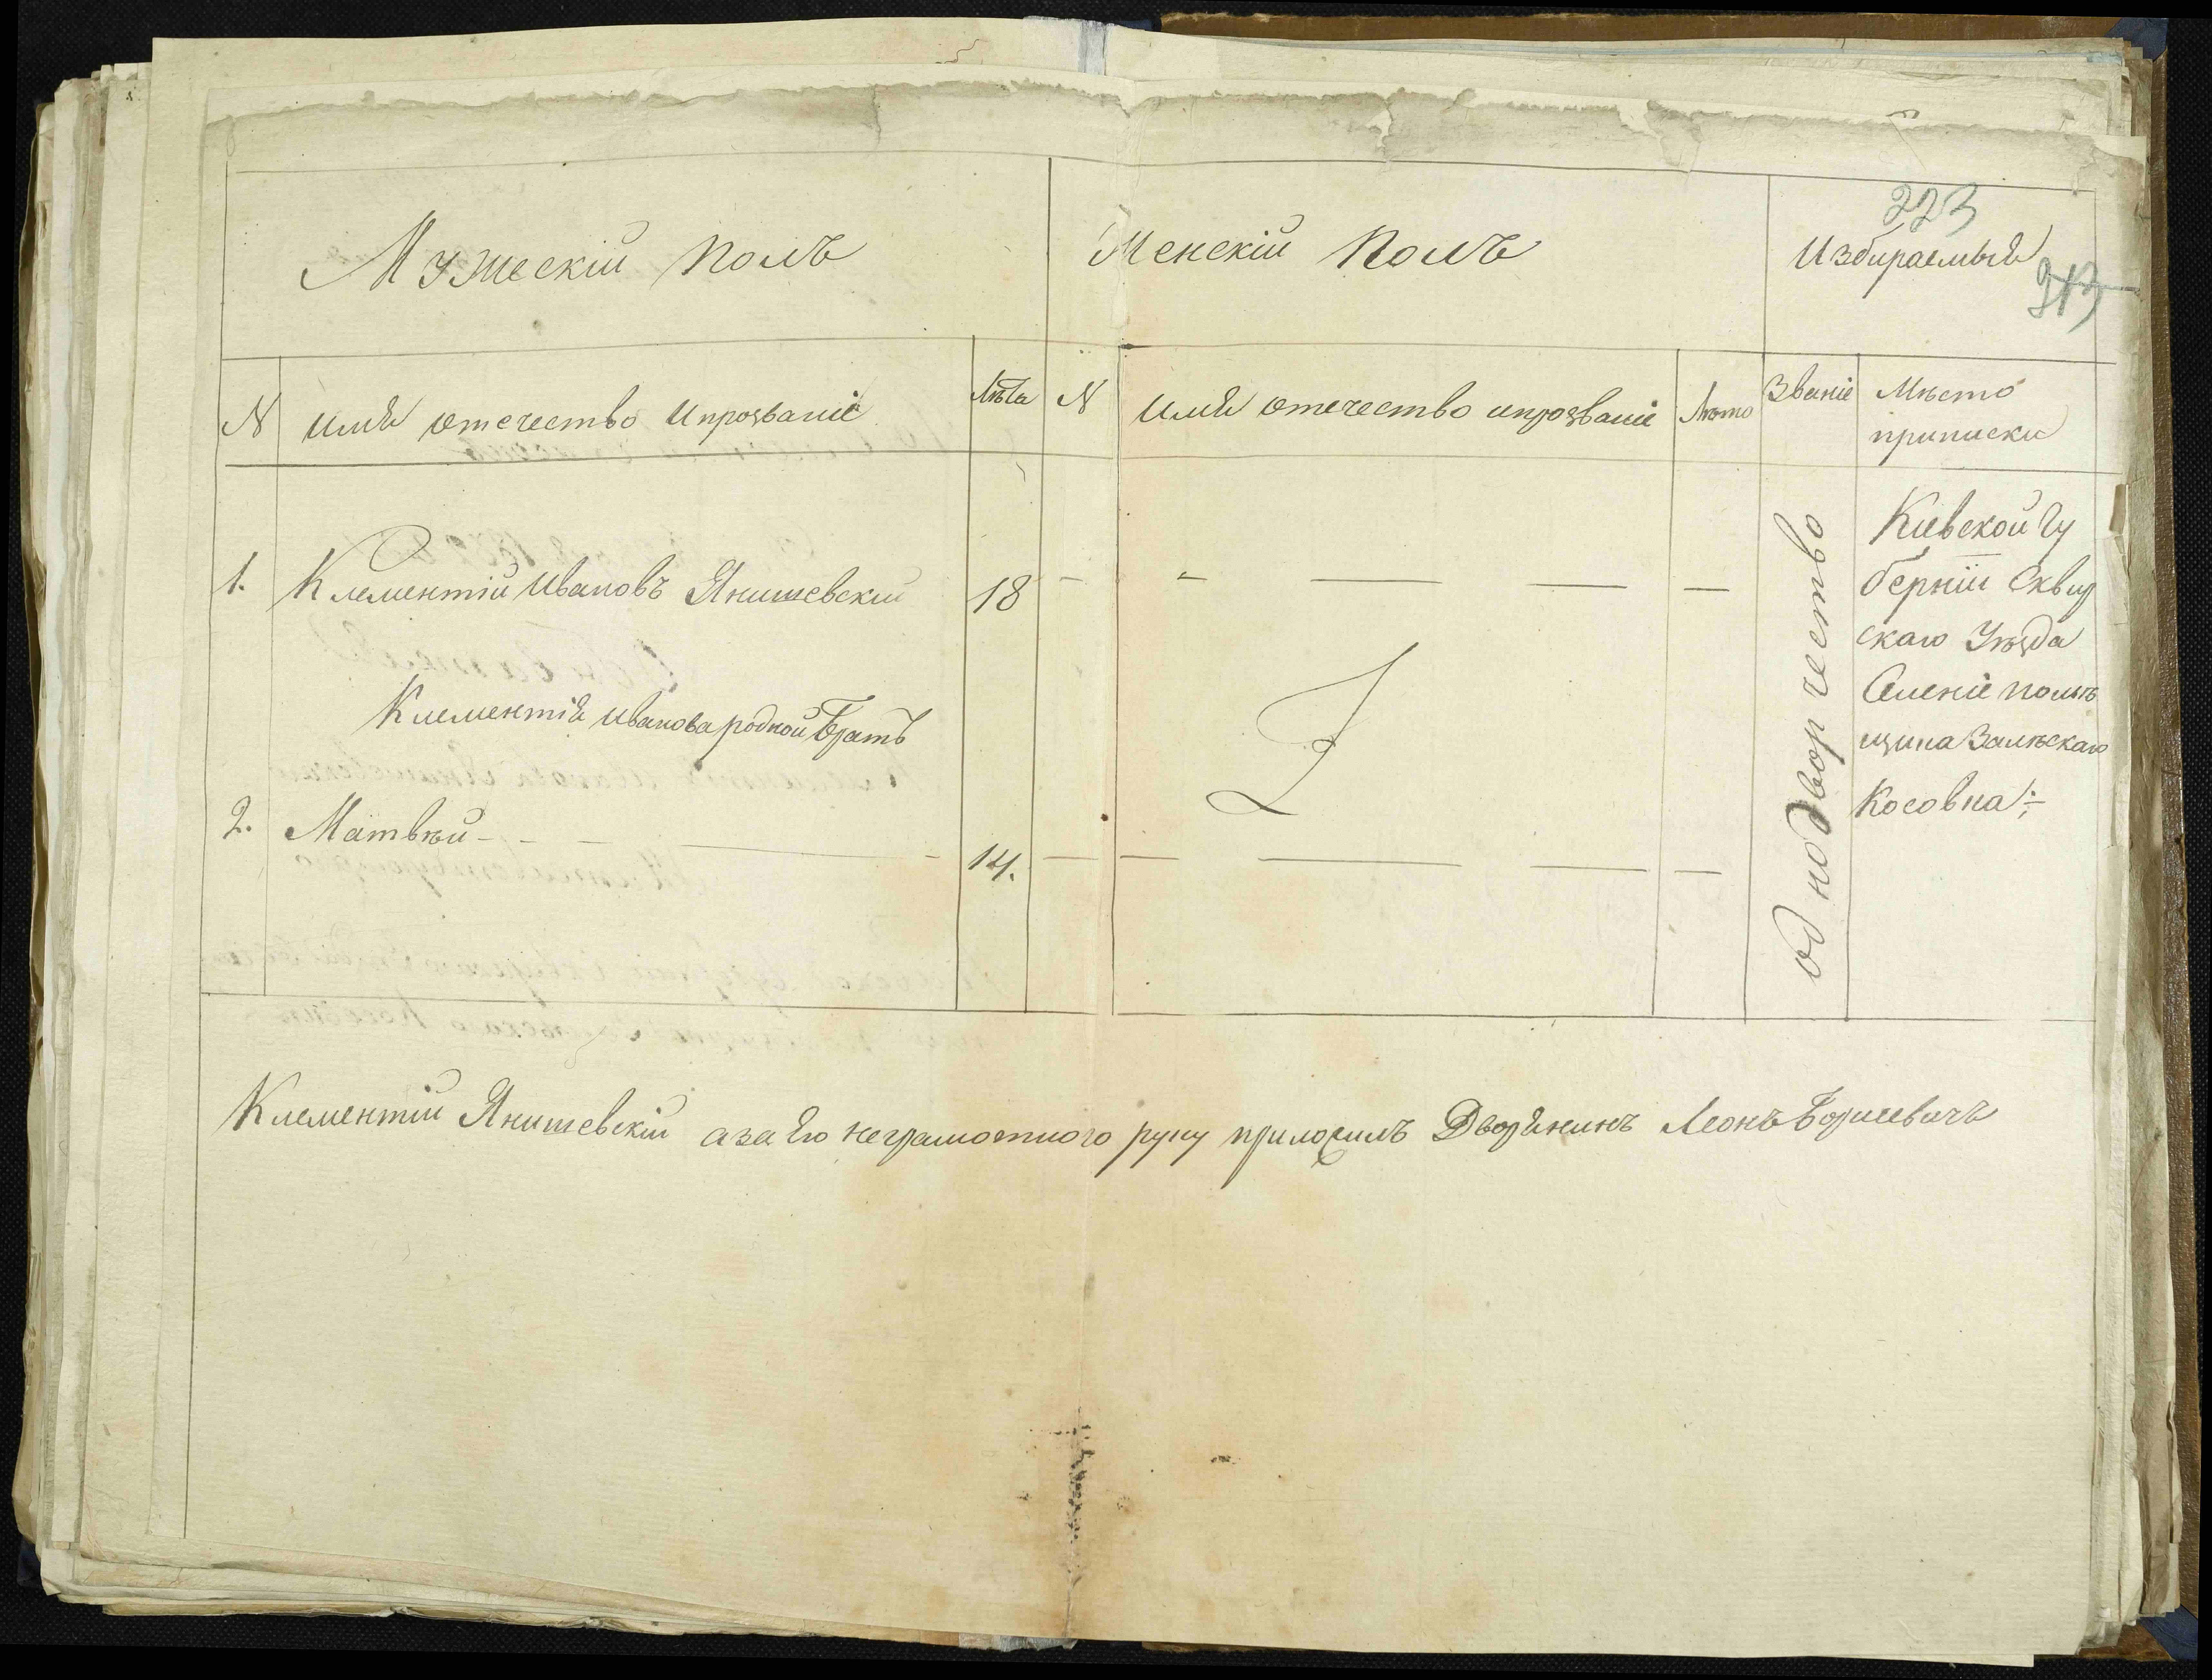 223
Мужескій полъ
Женскій полъ
Избираемыя
313
N
имя отечество ипрозваніе
лѣта
N
имя отечество ипрозваніе
лѣто
Званіе
Мѣсто
приписки
1.
Клементій Ивановъ Янишевскій
18
однодворчество
Кіевской Гу
берніи Сквир
скаго Уѣзда
Клементія Иванова родной братъ
2.
Матвѣй
14.
Косовка
Клементій Янишевскій а за его неграмотного руку приложилъ Дворянинъ Леонъ Боришевичъ